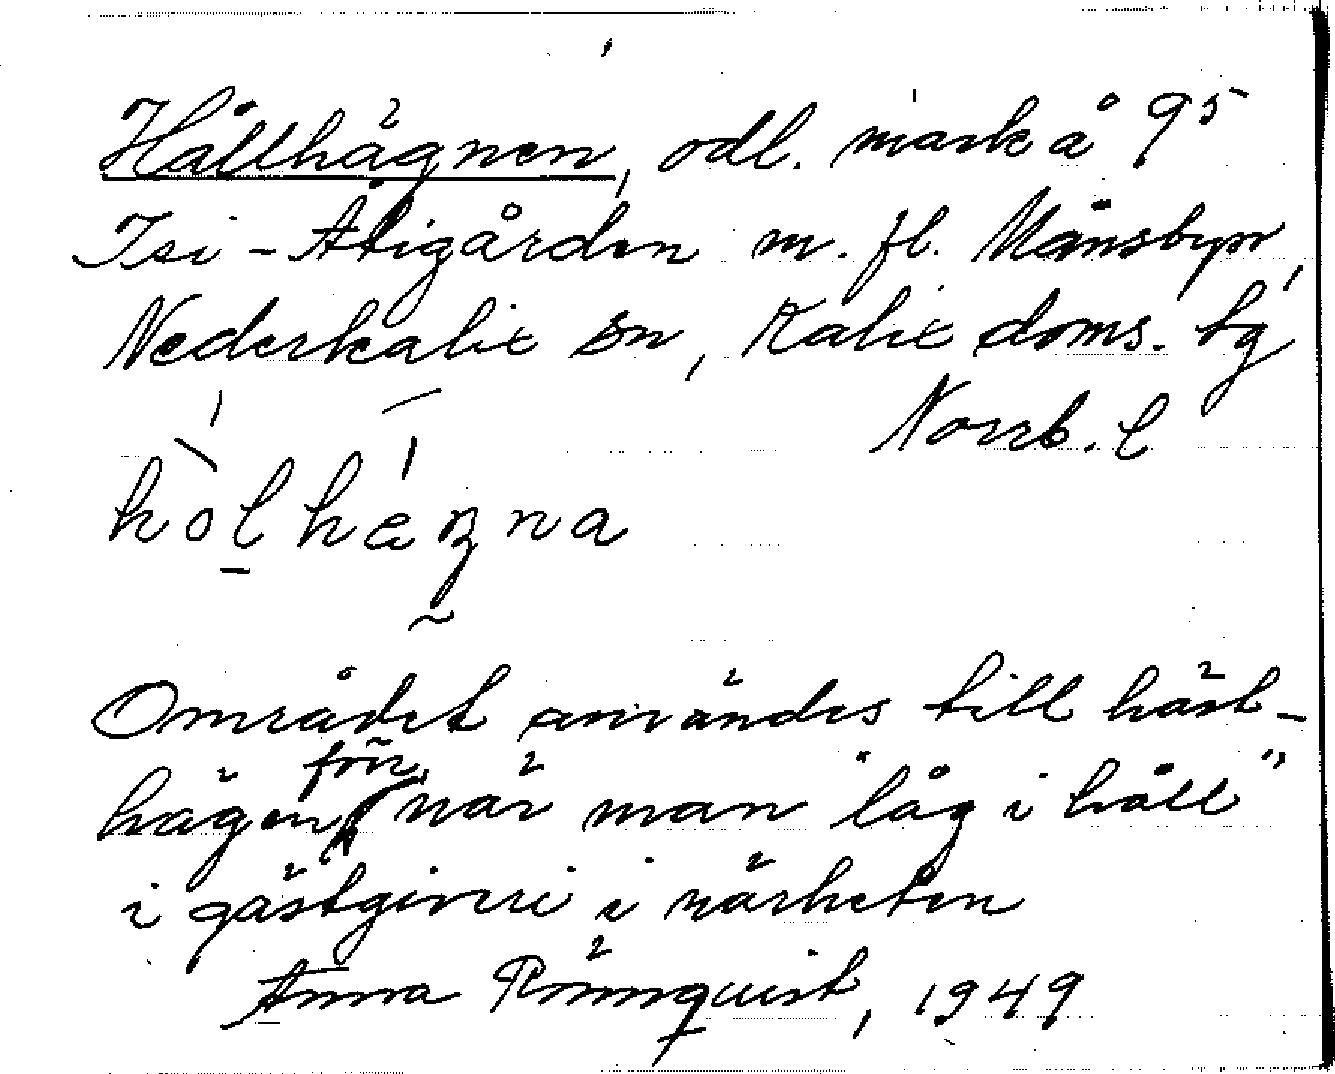 Hållhägnen, odl. mark å 9⁵
Isi-Åkigården m. fl. Månsbyn,
Nederkalix sn, Kalix doms. tg
Norrb. l
hòlhǽgna
Området användes till häst-
hägen förr, när man "låg i håll"
i gästgiveri i närheten
Anna Rönnquist, 1949